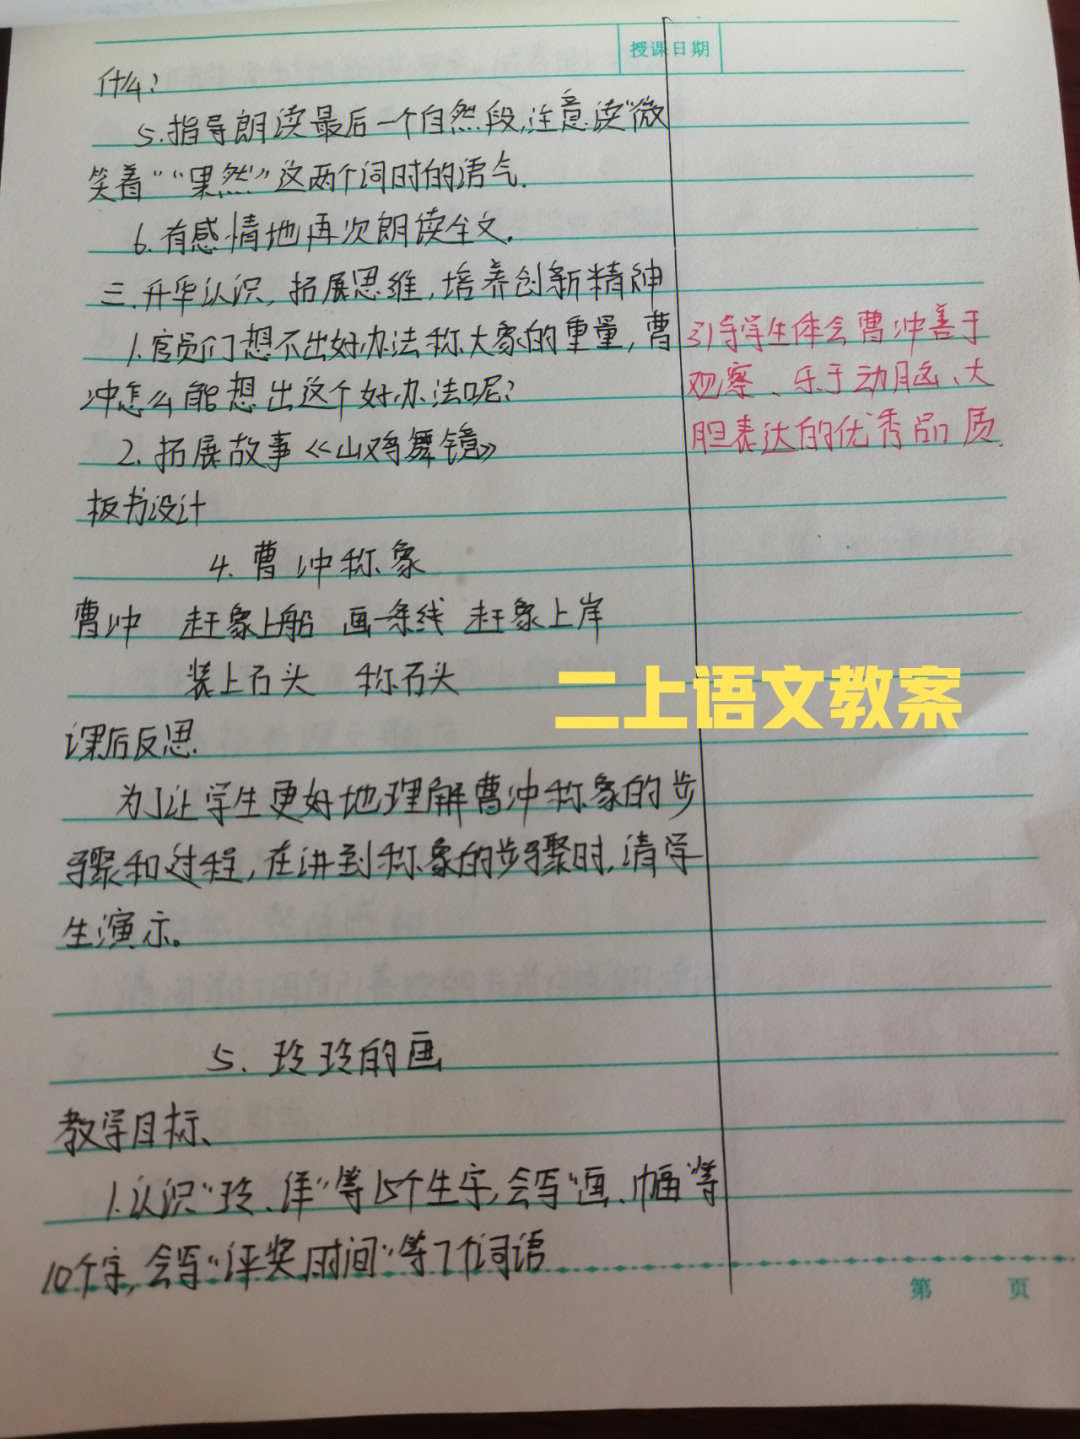 授课日期
什么?
5.指导朗读最后一个自然段,注意读“微
笑着”“果然”这两个词时的语气.
6.有感情地再次朗读全文.
三.升华认识,拓展思维,培养创新精神
1.官员们想不出好办法称大象的重量,曹
冲怎么能想出这个好办法呢?
2.拓展故事《山鸡舞镜》
引导学生体会曹冲善于
观察、乐于动脑、大
胆表达的优秀品质.
板书设计
4.曹冲称象
曹冲 赶象上船 画一条线 赶象上岸
装上石头 称石头
二上语文教案
课后反思
为了让学生更好地理解曹冲称象的步
骤和过程,在讲到称象的步骤时,请学
生演示。
5.玲玲的画
教学目标、
1.认识“玲、详”等15个生字,会写“画、幅”等
10个字,会写“评奖、时间”等7个词语
第 页